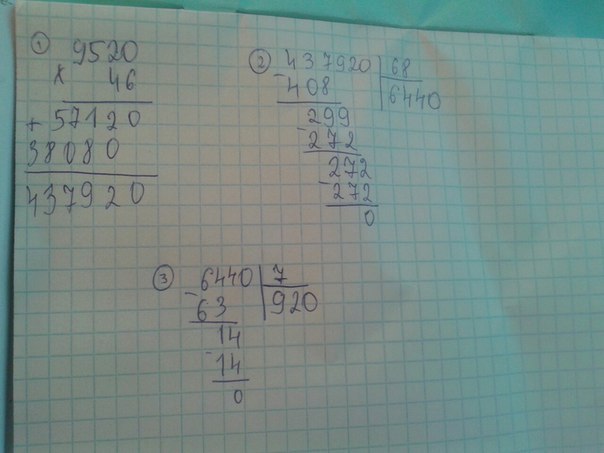 ① 9520
× 46
+ 57120
38080
437920
② 437920 | 68
- 408 | 6440
299
- 272
272
- 272
0
③ 6440 | 7
- 63 | 920
14
- 14
0